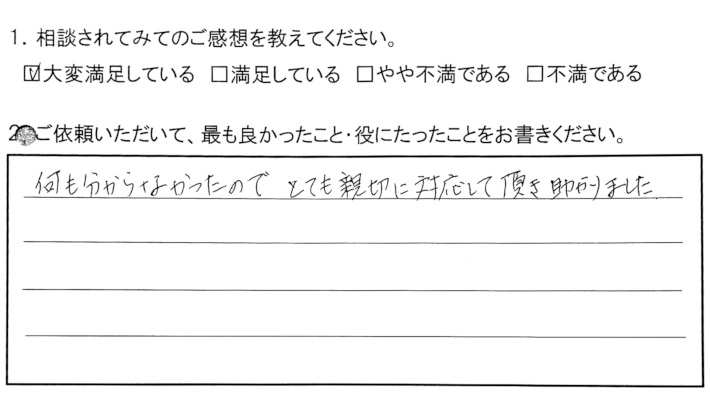 1. 相談されてみてのご感想を教えてください。
☑大変満足している □満足している □やや不満である □不満である
2 ご依頼いただいて、最も良かったこと・役にたったことをお書きください。
何も分からなかったので とても親切に対応して頂き助かりました